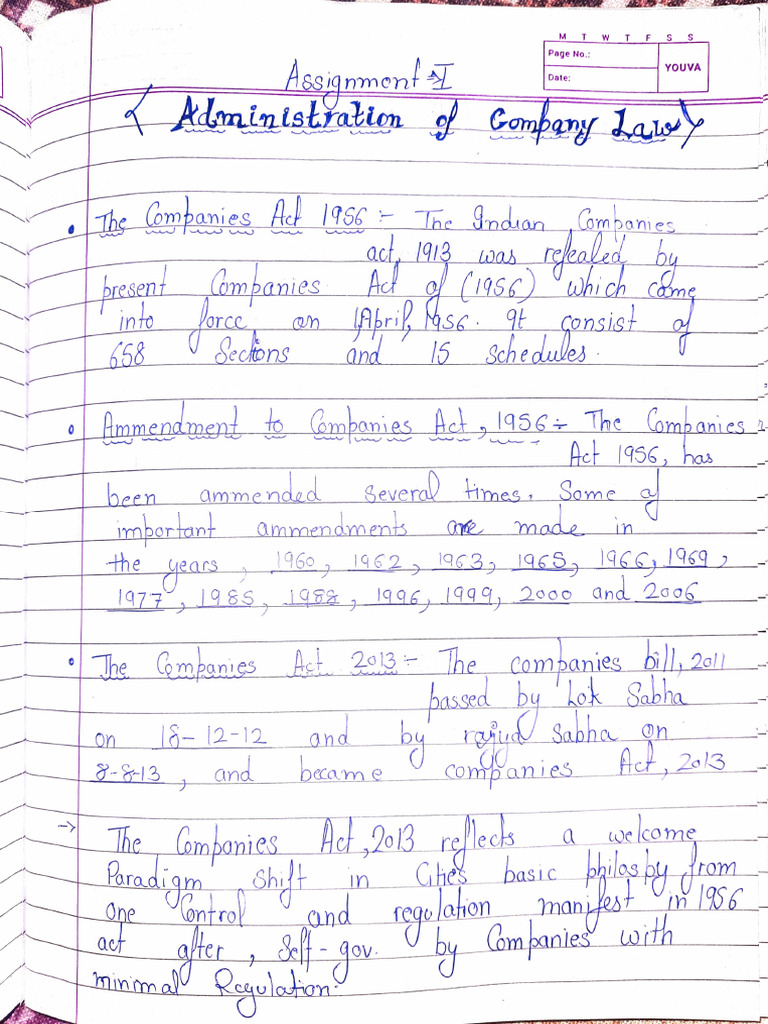 M T W T F S S
Page No.:
YOUVA
Date:
Assignment - I
< Administration of Company Law >
• The Companies Act 1956 :- The Indian Companies
act, 1913 was refealed by
present Companies Act of (1956) which come
into force on 1April, 1956. It consist of
658 Sections and 15 schedules.
• Ammendment to Companies Act, 1956 :- The Companies
Act 1956, has
been ammended several times. Some of
important ammendments are made in
the years, 1960, 1962, 1963, 1965, 1966, 1969,
1977, 1985, 1988, 1996, 1999, 2000 and 2006
• The Companies Act 2013 :- The companies bill, 2011
passed by Lok Sabha
on 18-12-12 and by Sabha on
8-8-13, and became companies Act, 2013
-> The Companies Act, 2013 reflects a welcome
Paradigm Shift in basic philosby from
one Control and regulation manifest in 1956
act after, Self-gov. by Companies with
minimal Regulation.